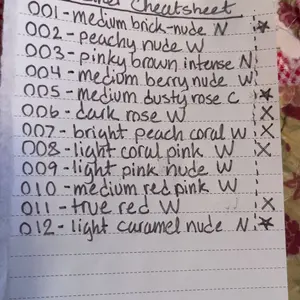 Cheatsheet
001-medium brick-nude N ★
002-peachy nude W
003-pinky brown intense N
004-medium berry nude W
005-medium dusty rose C ★
006-dark rose W X
007-bright peach coral W X
008-light coral pink W X
009-light pink nude W
010-medium red pink W
011-true red W X
012-light caramel nude N ★